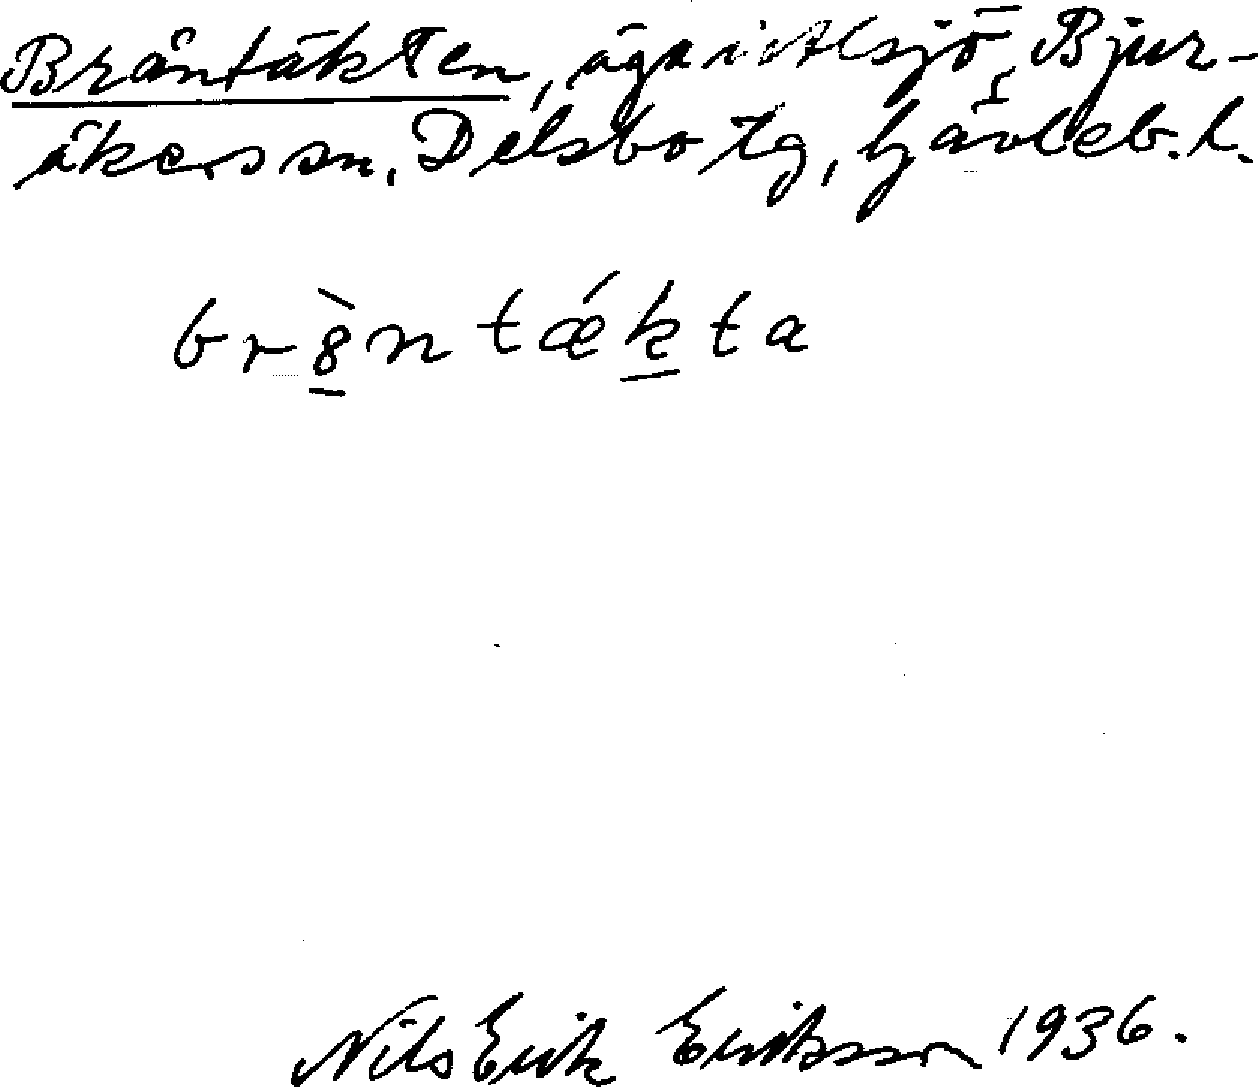 Bråntäkten, äga i Alsjö, Bjur-
åkers sn, Delsbo tg, Gävleb. l.
br8̀n tǽkta
Nils Erik Eriksson 1936.